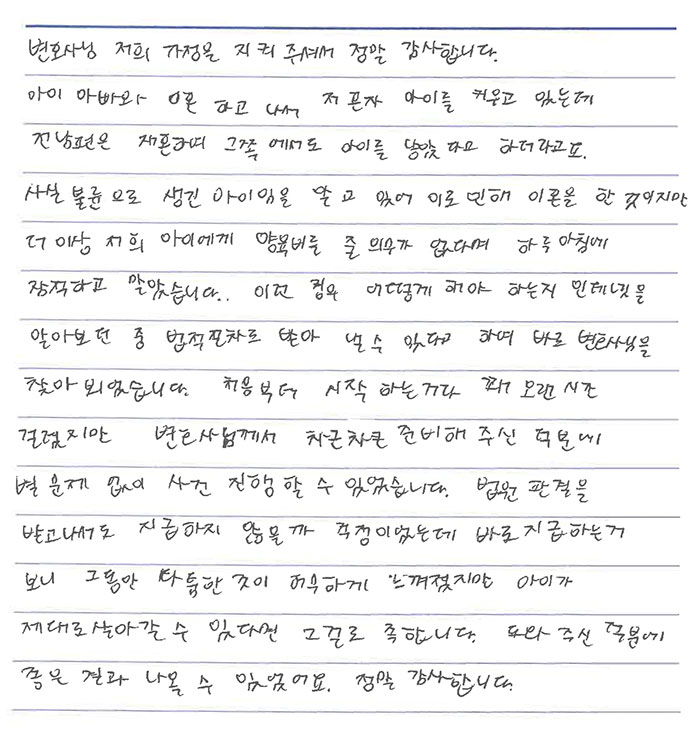 변호사님 저희 가정을 지켜 주셔서 정말 감사합니다.
아이 아빠와 이혼 하고 나서 저 혼자 아이를 키우고 있는데
전남편은 재혼하며 그쪽 에서도 아이를 낳았 다고 하더라고요.
사실 불륜 으로 생긴 아이임을 알고 있어 이로 인해 이혼을 한 것이지만
더 이상 저희 아이에게 양육비를 줄 의무가 없다며 하루 아침에
잠적하고 말았습니다.. 이런 경우 어떻게 해야 하는지 인테넷을
알아보던 중 법적절차로 받아 낼 수 있다고 하여 바로 변호사님을
찾아 뵈었습니다. 처음 부터 시작 하는거다 꽤 오랜 시간
걸렸지만 변호사님께서 차근차근 준비해 주신 덕분에
별 문제 없이 사건 진행 할 수 있었습니다. 법원 판결을
받고나서도 지급하지 않을까 걱정이었는데 바로 지급하는거
보니 그동안 다툼한 것이 허무하게 느껴졌지만 아이가
제대로 살아갈 수 있다면 그걸로 족합니다. 도와 주신 덕분에
좋은 결과 나올 수 있었어요. 정말 감사합니다.